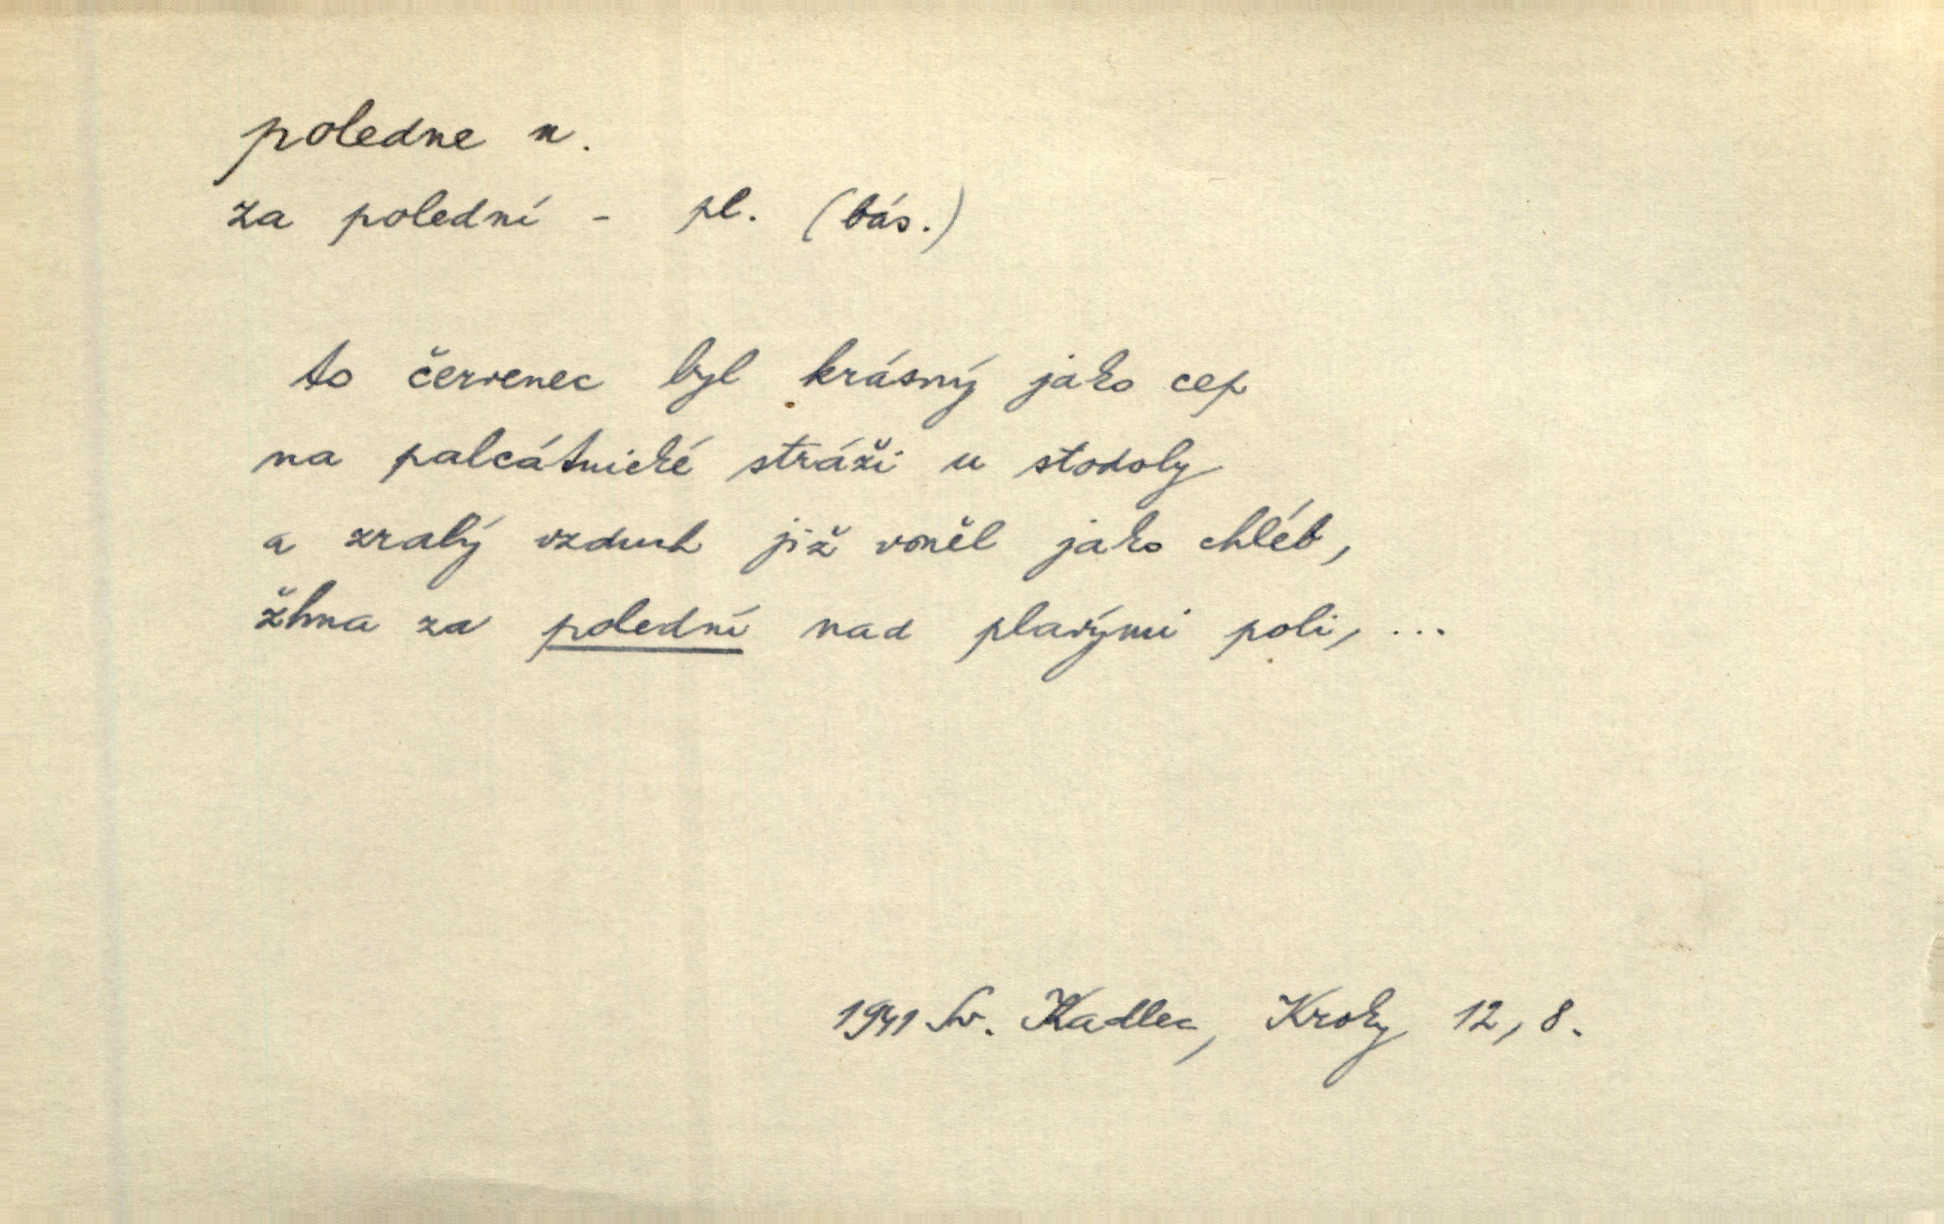 poledne n.
za polední - pl. (bás.)
to červenec byl krásný jako cep
na palcátnické stráži u stodoly
a zralý vzduch již voněl jako chléb,
žhna za polední nad plavými poli, ...
1941 Sv. Kadlec, Kroky 12, 8.